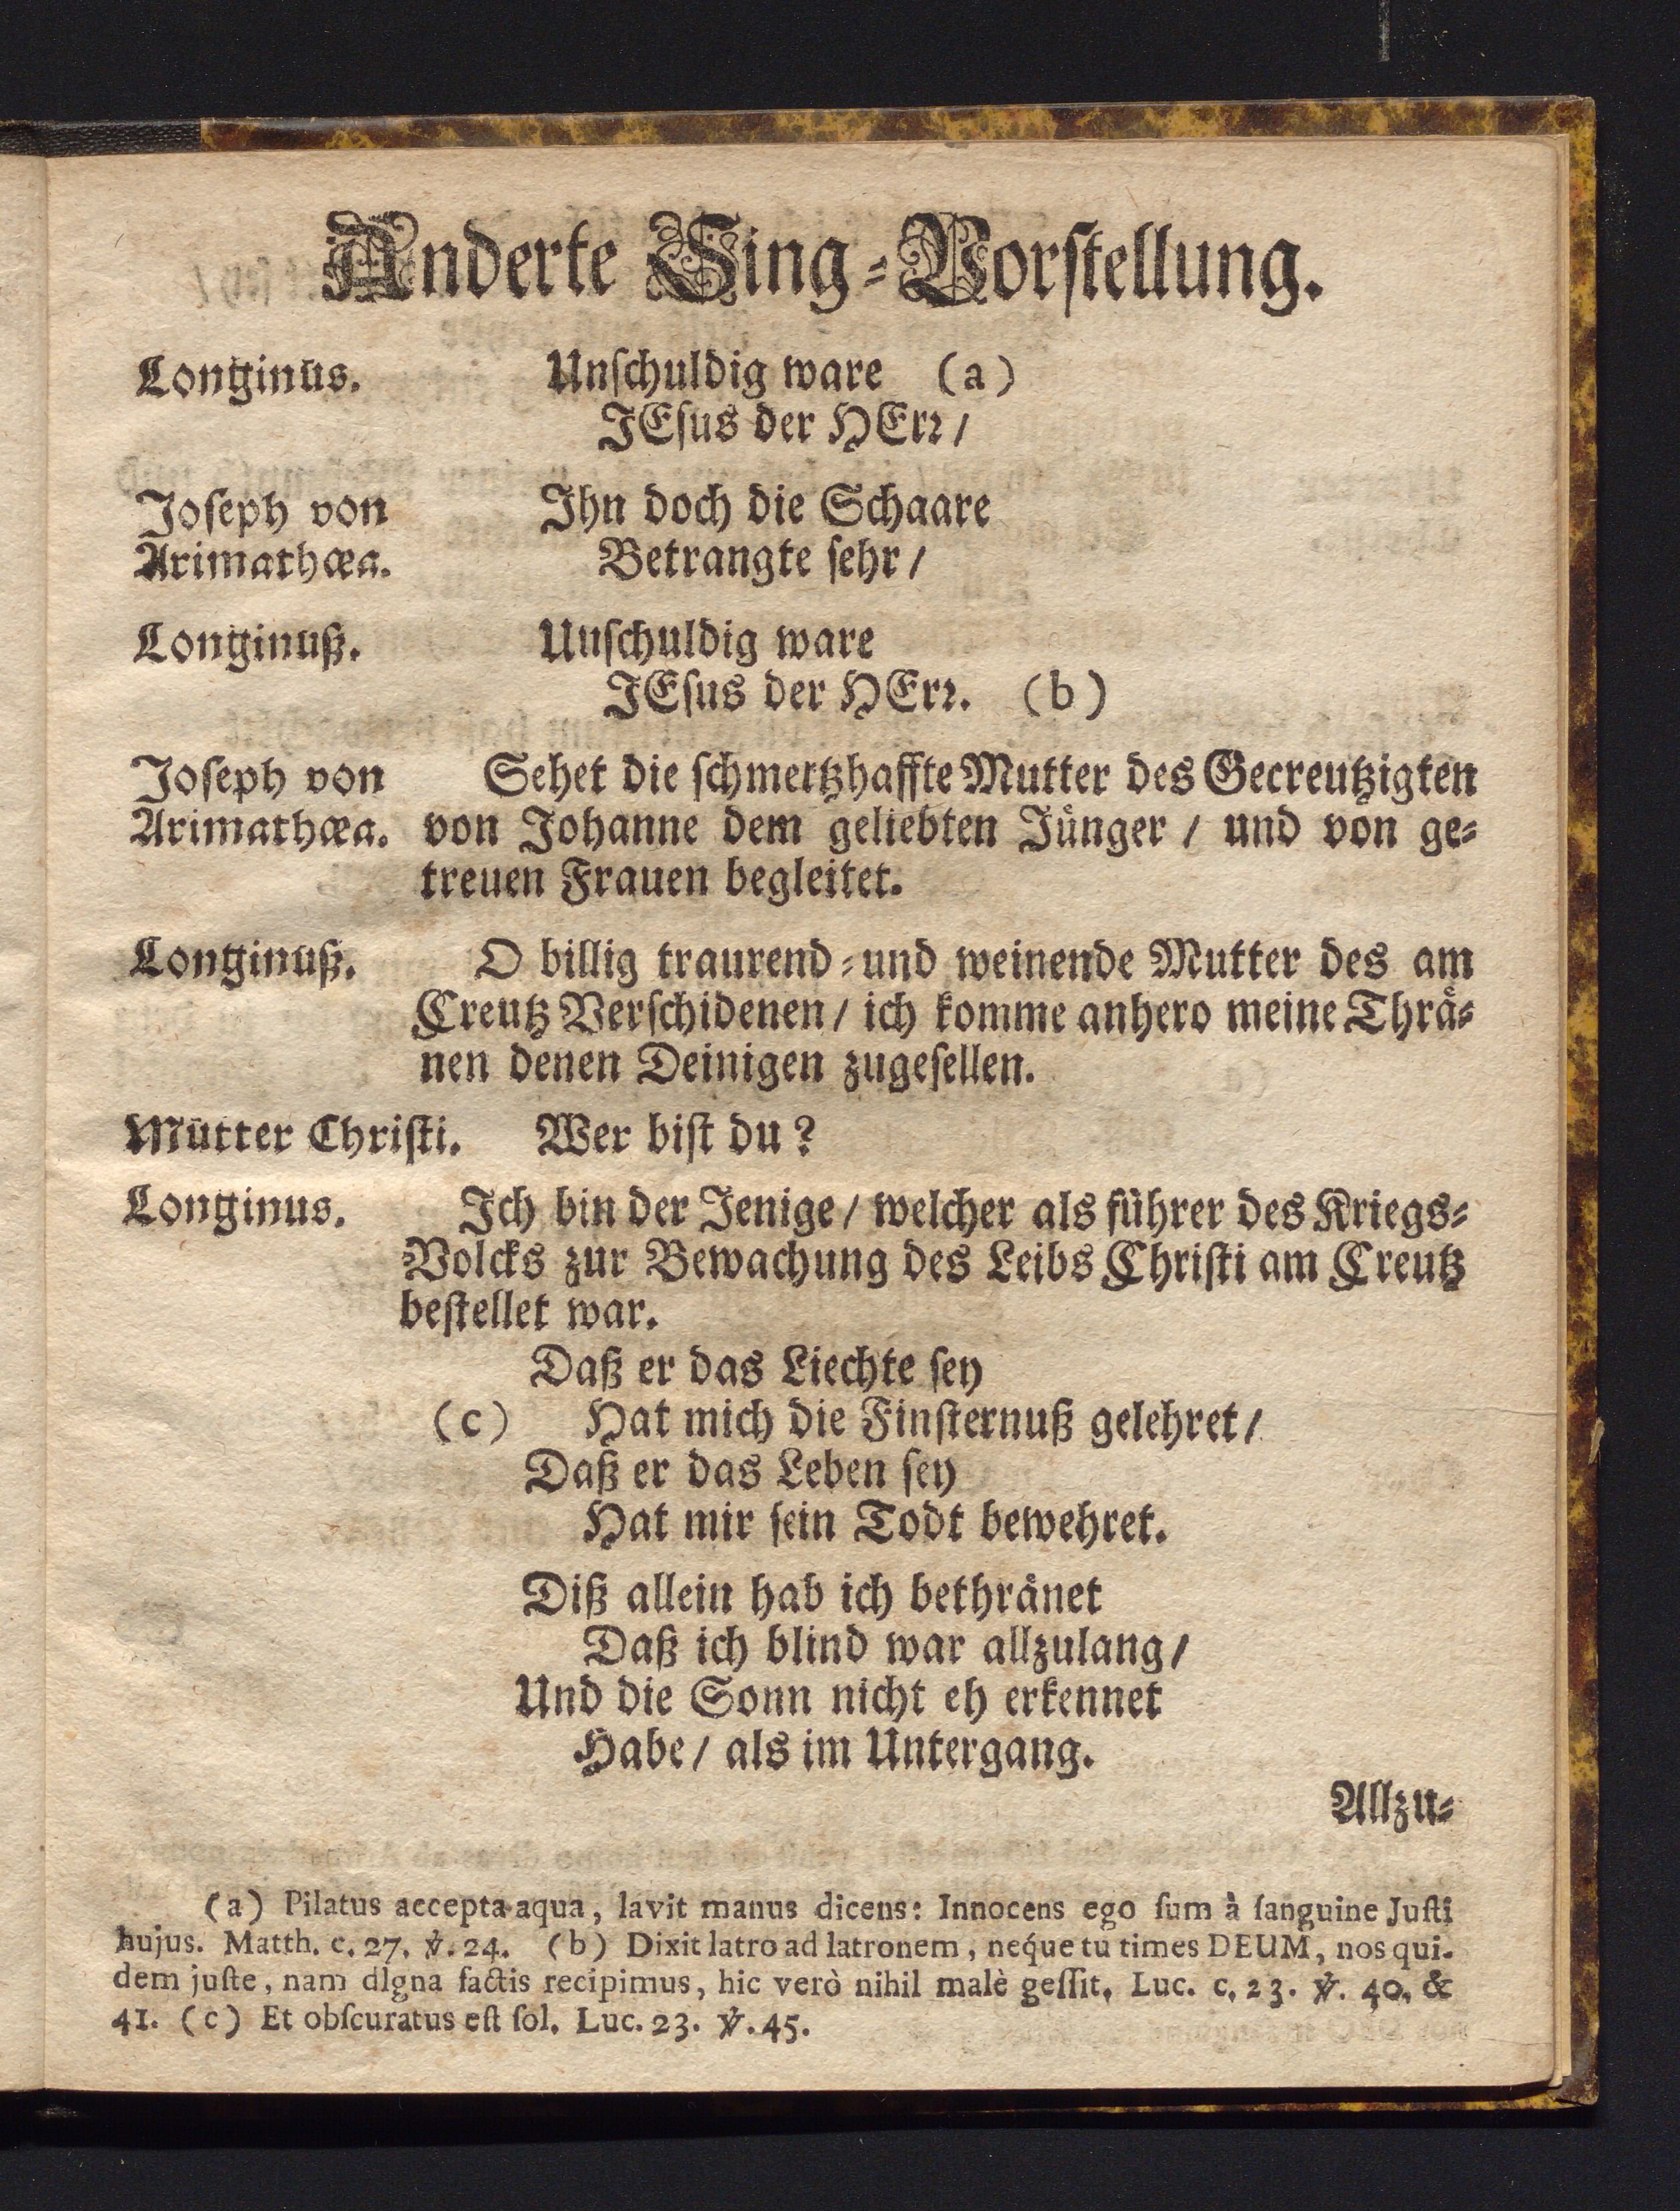 Anderte Sing-Vorſtellung.
Longinus. Unſchuldig ware (a)
JEſus der HErꝛ /
Joſeph von Ihn doch die Schaare
Arimathæa. Betrangte ſehr /
Longinuß. Unſchuldig ware
JEſus der HErꝛ. (b)
Joſeph von Sehet die ſchmertzhaffte Mutter des Gecreutzigten
Arimathæa. von Johanne dem geliebten Jünger / und von ge-
treuen Frauen begleitet.
Longinuß. O billig traurend- und weinende Mutter des am
Creutz Verſchidenen / ich komme anhero meine Thrä-
nen denen Deinigen zugeſellen.
Mutter Chriſti. Wer biſt du?
Longinus. Ich bin der Jenige / welcher als führer des Kriegs-
Volcks zur Bewachung des Leibs Chriſti am Creutz
beſtellet war.
Daß er das Liechte ſey
(c) Hat mich die Finſternuß gelehret /
Daß er das Leben ſey
Hat mir ſein Todt bewehret.
Diß allein hab ich bethränet
Daß ich blind war allzulang /
Und die Sonn nicht eh erkennet
Habe / als im Untergang.
Allzu-
(a) Pilatus accepta aqua, lavit manus dicens: Innocens ego ſum à ſanguine Juſti
hujus. Matth. c. 27. ℣. 24. (b) Dixit latro ad latronem, neque tu times DEUM, nos qui-
dem juſte, nam dIgna factis recipimus, hic verò nihil malè geſſit. Luc. c. 23. ℣. 40. &
41. (c) Et obſcuratus eſt ſol. Luc. 23. ℣. 45.